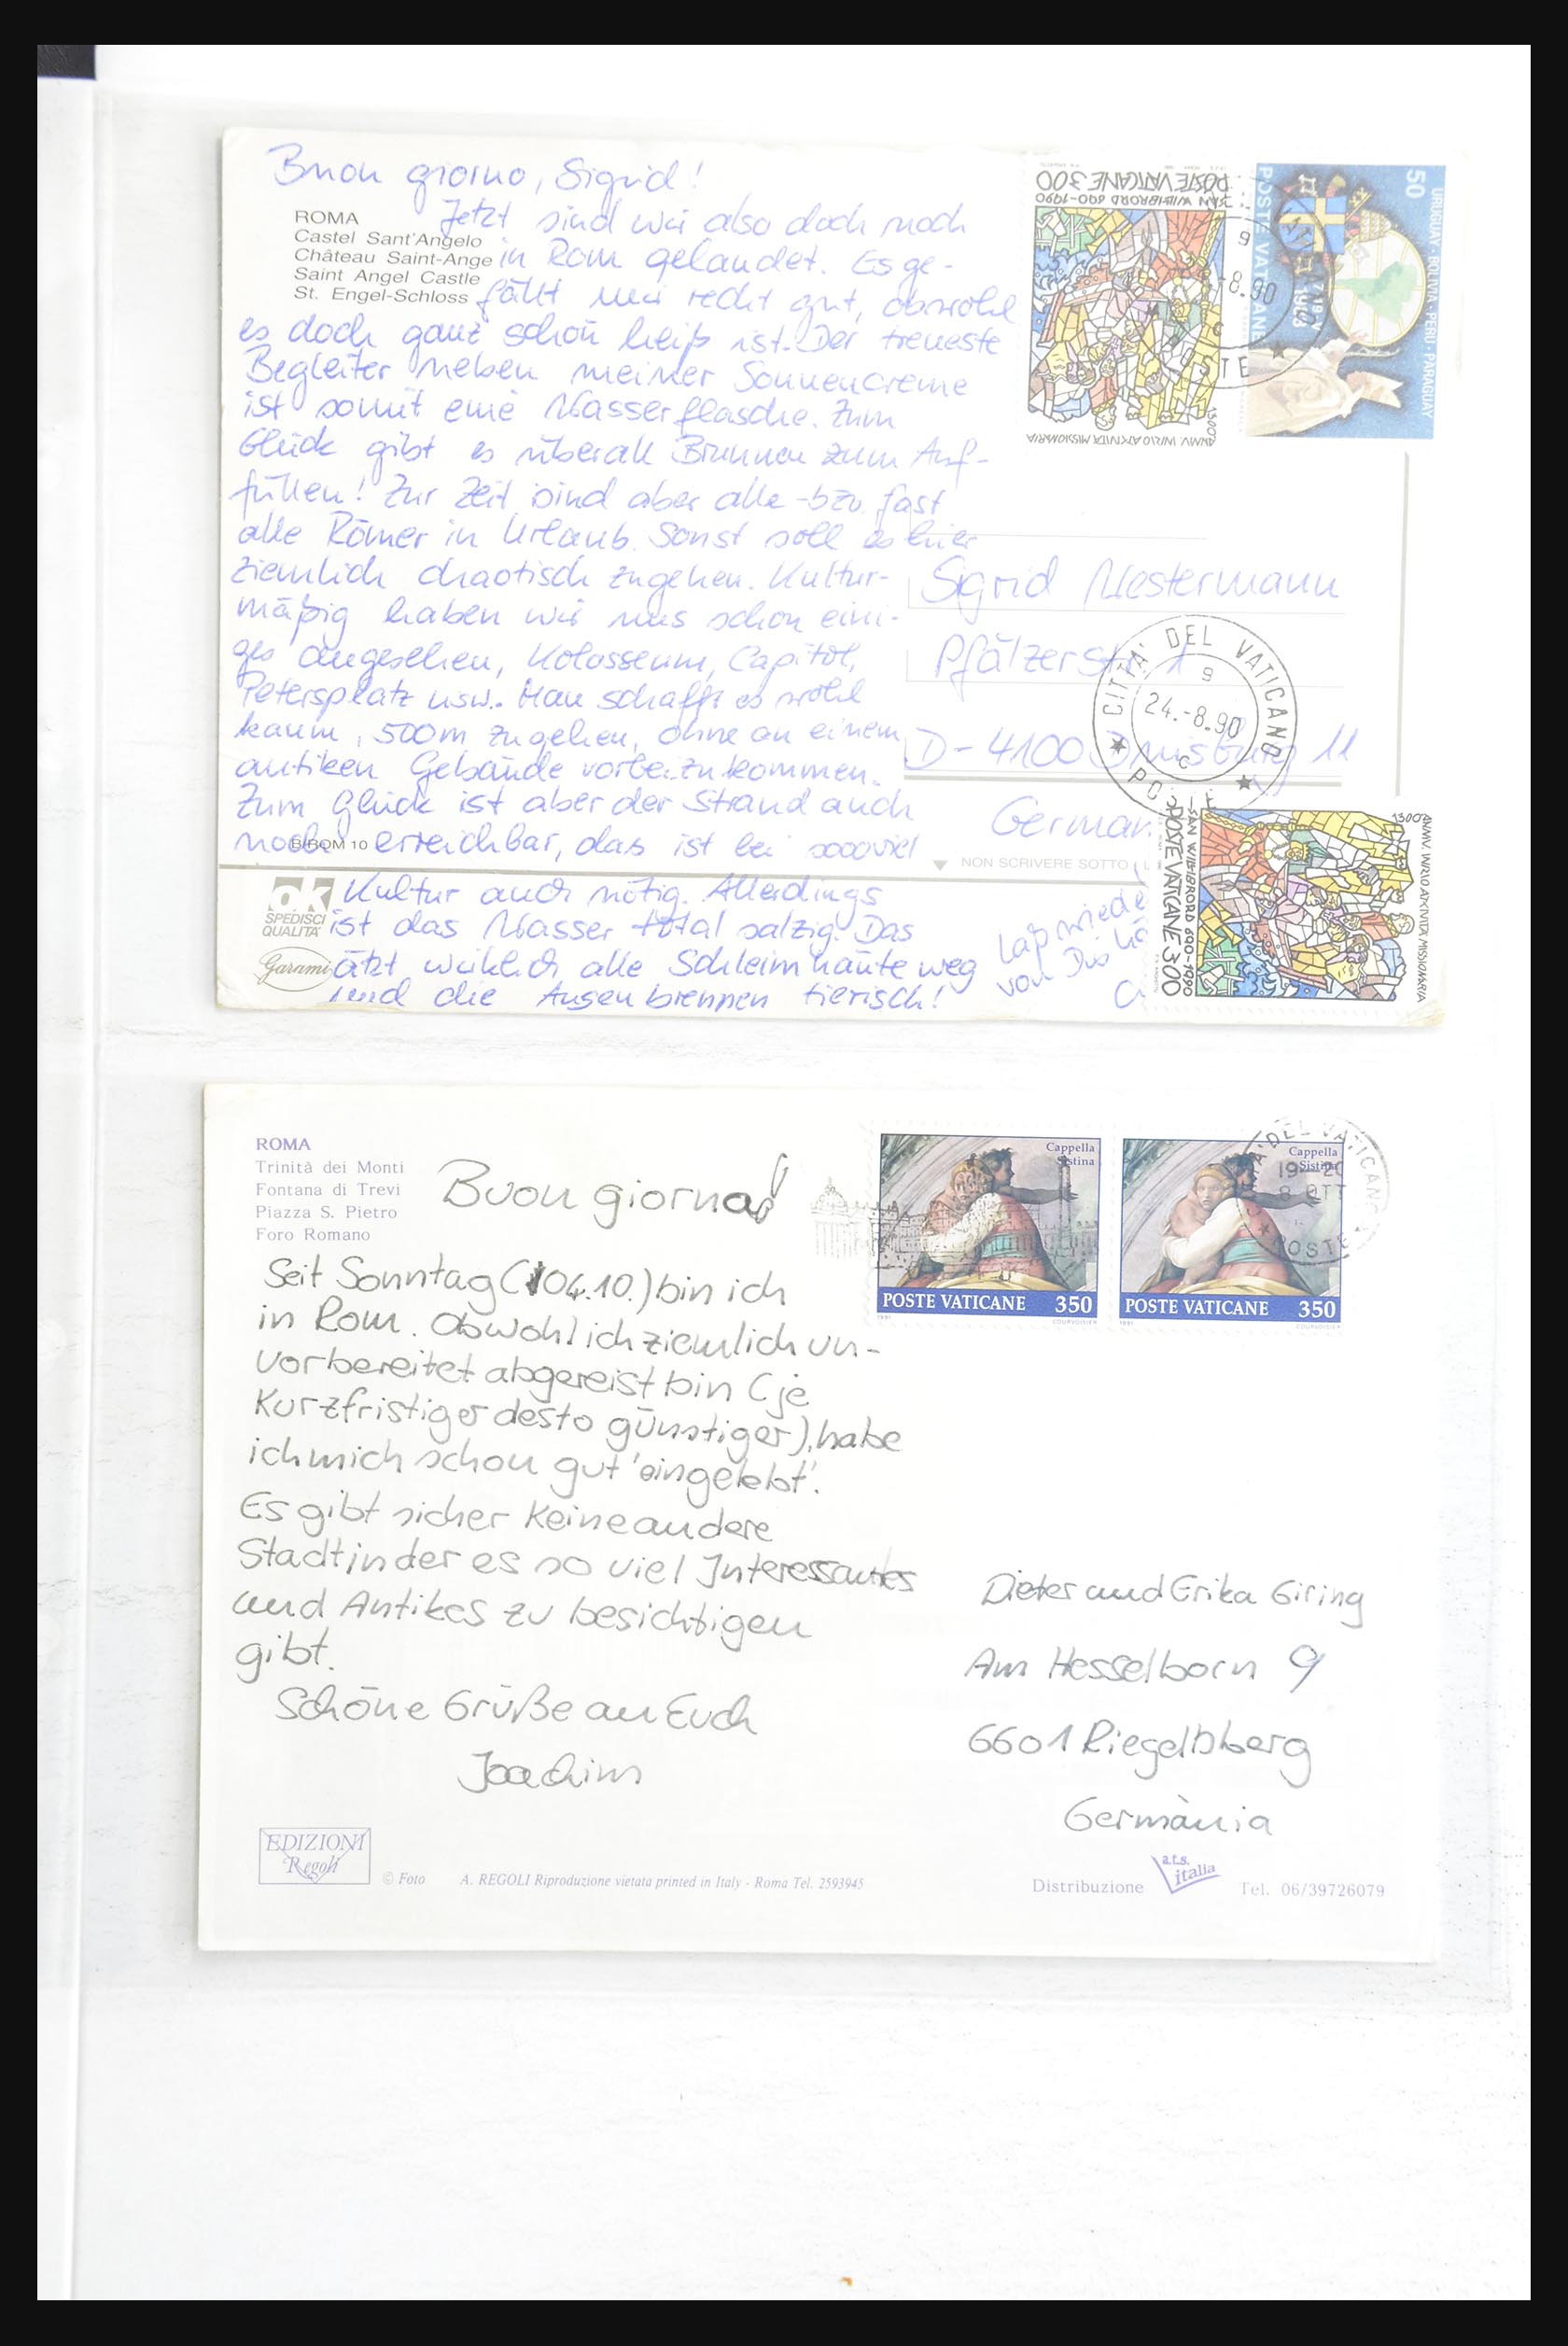 Buon giorno, Sigrid!
ROMA
Castel Sant'Angelo
Château Saint-Ange
Saint Angel Castle
St. Engel-Schloss
Jetzt sind wir also doch noch
in Rom gelandet. Es ge-
fällt mir recht gut, obwohl
es doch ganz schön heiß ist. Der treueste
Begleiter neben meiner Sonnencreme
ist somit eine Wasserflasche. Zum
Glück gibt es überall Brunnen zum Auf-
füllen! Zur Zeit sind aber alle - bzw. fast
alle Römer in Urlaub. Sonst soll es hier
ziemlich chaotisch zugehen. Kultur-
mäßig haben wir uns schon eini-
ges angesehen, Kolosseum, Capitol,
Petersplatz usw.. Man schafft es wohl
kaum, 500m zu gehen, ohne an einem
antiken Gebäude vorbeizukommen.
Zum Glück ist aber der Strand auch
noch erreichbar, das ist bei soooviel
B/ROM 10
Kultur auch nötig. Allerdings
ist das Wasser total salzig. Das
ätzt wirklich alle Schleimhäute weg
und die Augen brennen tierisch!
ok
SPEDISCI
QUALITA'
Garami
NON SCRIVERE SOTTO
Laß wiede
von Dir hö
POSTE VATICANE 300
SAN WILLIBRORD 690-1990
1300° ANNIV. INIZIO ATTIVITÀ MISSIONARIA
50
URUGUAY·BOLIVIA·PERU·PARAGUAY
POSTE VATICANE
1988
9
-8.90
STE
Sigrid Westermann
Pfälzerstr. 1
D-4100 Duisburg 11
German
CITTA' DEL VATICANO
9
24.-8.90
C
POSTE
SAN WILLIBRORD 690-1990
POSTE VATICANE 300
1300° ANNIV. INIZIO ATTIVITÀ MISSIONARIA
ROMA
Trinità dei Monti
Fontana di Trevi
Piazza S. Pietro
Foro Romano
Buon giorno!
Seit Sonntag (04.10.) bin ich
in Rom. Obwohl ich ziemlich un-
vorbereitet abgereist bin (je
kurzfristiger desto günstiger), habe
ich mich schon gut 'eingelebt'.
Es gibt sicher keine andere
Stadt in der es so viel Interessantes
und Antikes zu besichtigen
gibt.
Schöne Grüße an Euch
Joachim
Cappella
Sistina
POSTE VATICANE 350
1991 COURVOISIER
Cappella
Sistina
POSTE VATICANE 350
1991 COURVOISIER
DEL VATICANO
19-20
8 OTT
POSTE
Dieter und Erika Giring
Am Hesselborn 9
6601 Riegelsberg
Germània
EDIZIONI
Regoli
© Foto A. REGOLI Riproduzione vietata printed in Italy - Roma Tel. 2593945
Distribuzione a.t.s. italia Tel. 06/39726079